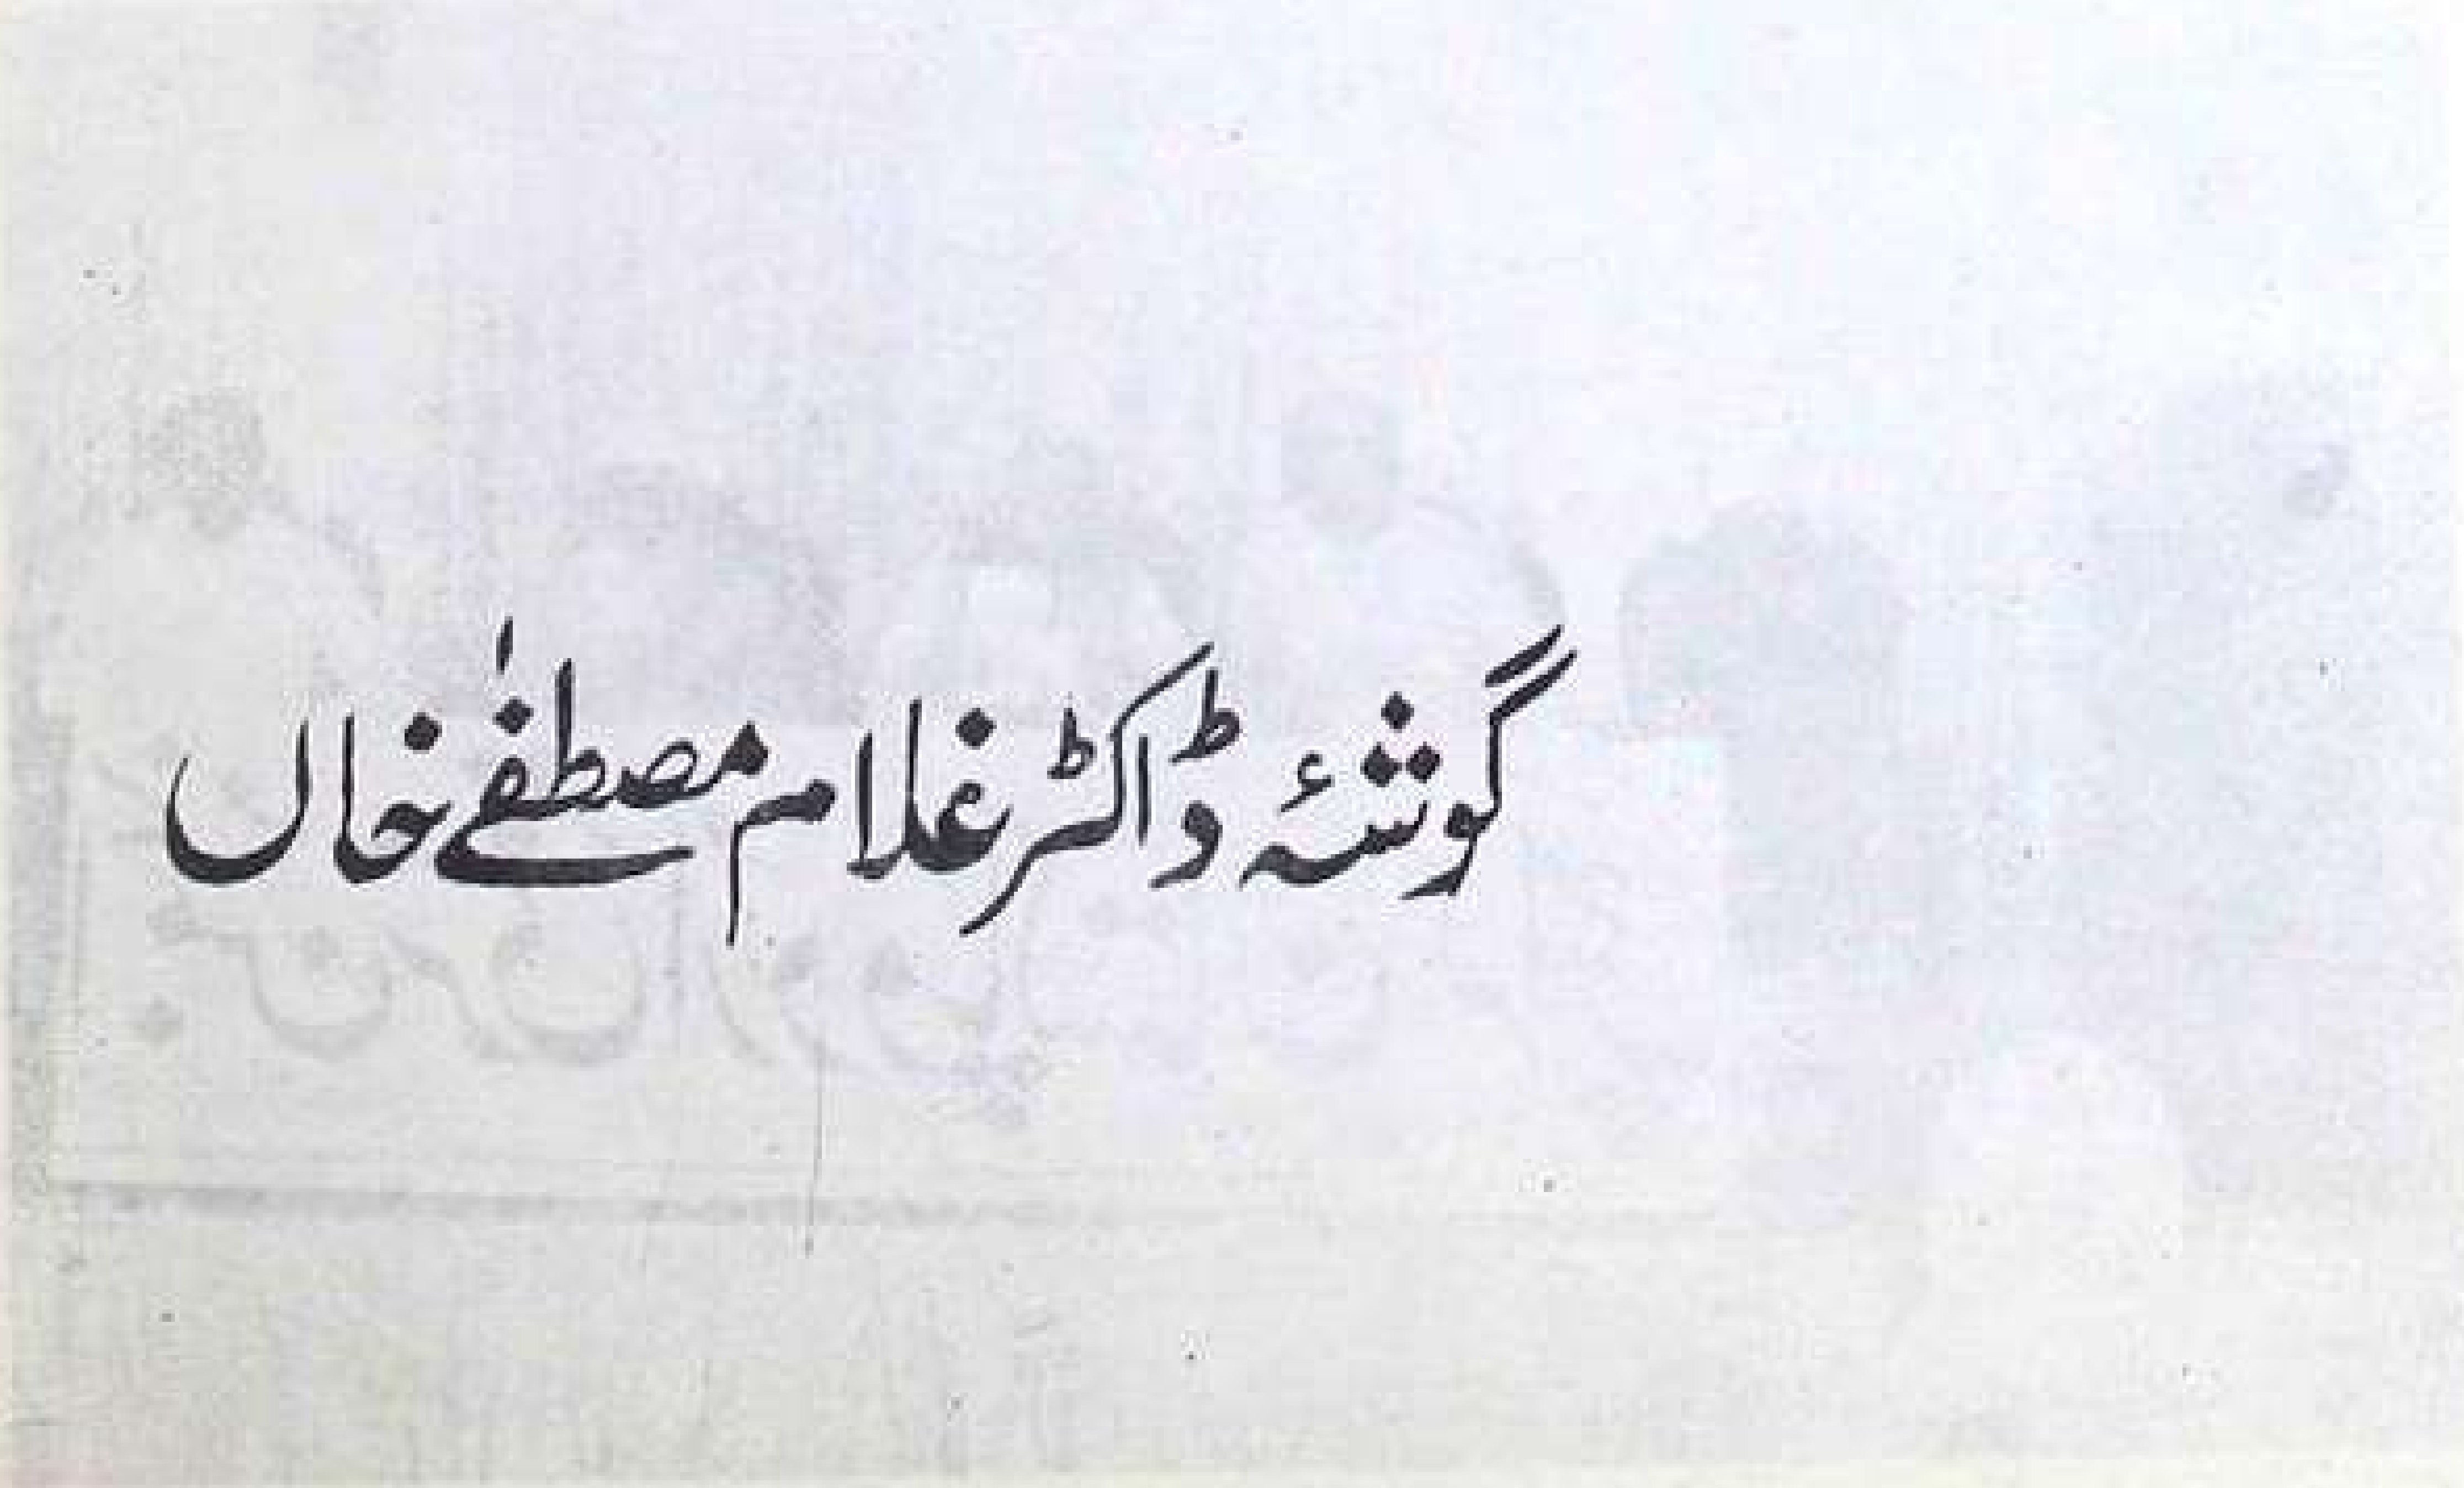 گوشۂ ڈاکٹر غلام مصطفےٰ خاں